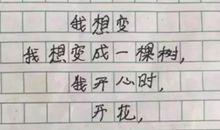 我想变
我想变成一棵树,
我开心时,
开花,